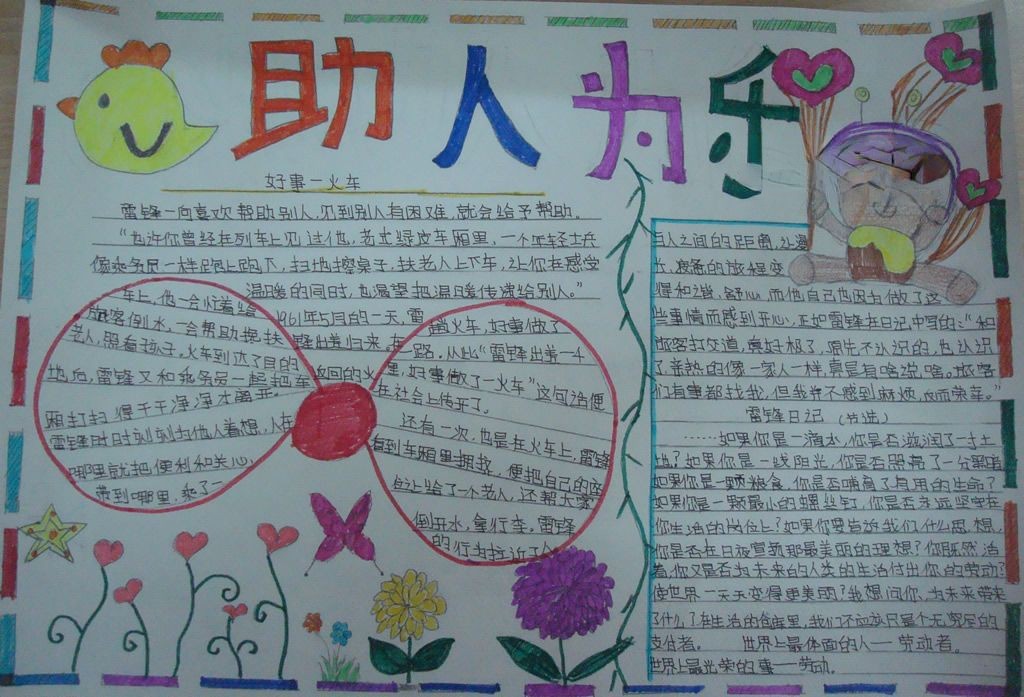 助人为乐
好事一火车
雷锋一向喜欢帮助别人,见到别人有困难,就会给予帮助。
“也许你曾经在列车上见过他,老式绿皮车厢里,一个年轻士兵
像乘务员一样跑上跑下,扫地擦桌子,扶老人上下车,让你在感受
温暖的同时,也渴望把温暖传递给别人。”
1961年5月的一天,雷
锋出差归来,在
返回的火
车上,他一会忙着给
旅客倒水,一会帮助搀扶
老人,照看孩子。火车到达了目的
地后,雷锋又和乘务员一起把车
厢打扫得干干净净才离开。
雷锋时时刻刻为他人着想,人在
哪里就把便利和关心
带到哪里,乘了一
趟火车,好事做了
一路。从此“雷锋出差一千
里,好事做了一火车”这句话便
在社会上传开了。
还有一次,也是在火车上,雷锋
看到车厢里拥挤,便把自己的座
位让给了一个老人,还帮大家
倒开水,拿行李,雷锋
的行为拉近了人
与人之间的距离,让漫
长、疲惫的旅程变
得和谐、舒心,而他自己也因为做了这
些事情而感到开心,正如雷锋在日记中写的:“和
旅客打交道,真好极了,原先不认识的,也认识
了,亲热的像一家人一样,真是有啥说啥。旅客
们有事都找我,但我并不感到麻烦,反而荣幸。”
雷锋日记(节选)
……如果你是一滴水,你是否滋润了一寸土
地?如果你是一线阳光,你是否照亮了一分黑暗?
如果你是一颗粮食,你是否哺育了有用的生命?
如果你是一颗最小的螺丝钉,你是否永远坚守在
你生活的岗位上?如果你要告诉我们什么思想,
你是否在日夜宣扬那最美丽的理想?你既然活
着,你又是否为未来的人类的生活付出你的劳动?
使世界一天天变得更美丽?我想问你,为未来带来
了什么?在生活的仓库里,我们不应该只是个无穷尽的
支付者。 世界上最体面的人——劳动者。
世界上最光荣的事——劳动。